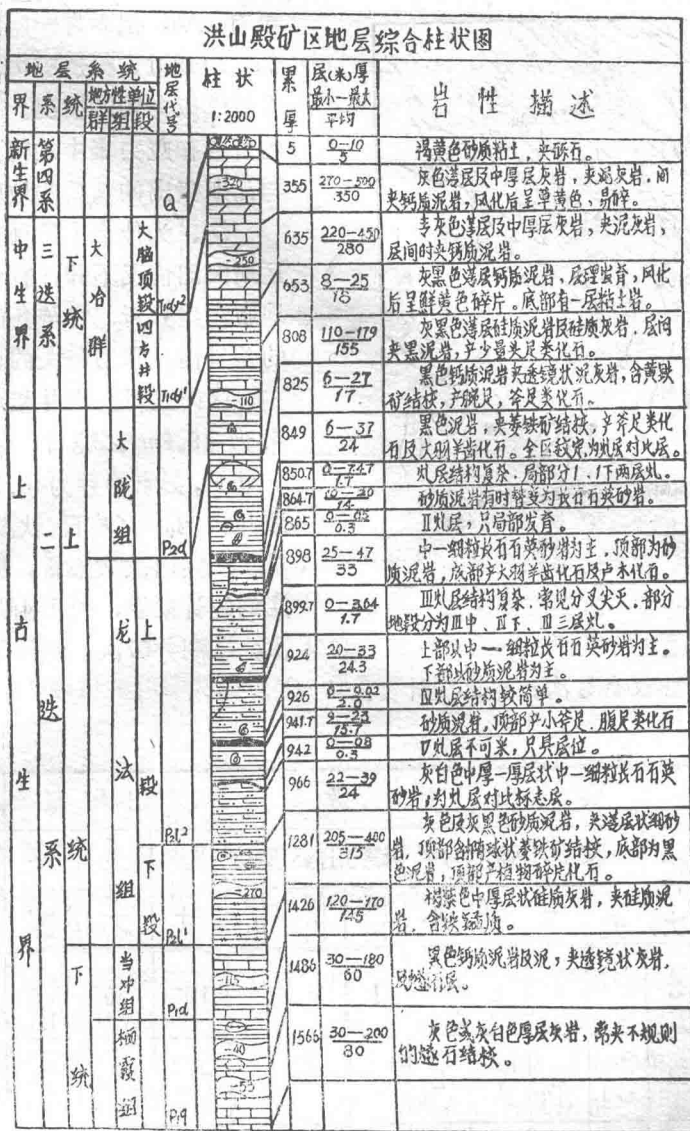 洪山殿矿区地层综合柱状图
地层系统
界 系 统 地方性单位
群 组 段
地层代号
柱状
1:2000
累厚
层(米)厚
最小一最大
平均
岩性描述
新生界
第四系
Q
中生界
三迭系
下统
大冶群
大脑顶段
T1dy2
四方井段
T1dy1
上古生界
二迭系
上统
大陇组
P2d
龙法组
上段
P2l2
下段
P2l1
下统
当冲组
P1d
栖霞组
P1q
-320
-250
-110
-270
-115
-40
-55
5
0—10
5
褐黄色砂质粘土,夹砾石。
355
270-500
350
灰色薄层及中厚层灰岩,夹泥灰岩,间
夹钙质泥岩,风化后呈草黄色,易碎。
635
220-450
280
青灰色薄层及中厚层灰岩,夹泥灰岩,
层间时夹钙质泥岩。
653
8—25
18
灰黑色薄层钙质泥岩,层理发育,风化
后呈鲜黄色碎片。底部有一层粘土岩。
808
110—179
155
灰黑色薄层硅质泥岩及硅质灰岩,层间
夹黑泥岩,产少量头足类化石。
825
6—27
17
黑色钙质泥岩夹透镜状泥灰岩,含黄铁
矿结核,产腕足,斧足类化石。
849
6—37
24
黑色泥岩,夹菱铁矿结核,产斧足类化
石及大羽羊齿化石。全区较宽,为灺层对比层。
850.7
0—7.47
1.7
灺层结构复杂,局部分I、I下两层灺。
864.7
10—20
14
砂质泥岩有时轻变为长石石英砂岩。
865
0.3
Ⅱ灺层,只局部发育。
898
25—47
33
中一细粒长石石英砂岩为主,顶部为砂
质泥岩,底部产大羽羊齿化石及卢木化石。
899.7
0—3.64
1.7
Ⅲ灺层结构复杂,常见分叉尖灭,部分
地段分为Ⅲ中、Ⅲ下、Ⅲ三层灺。
924
20—33
24.3
上部以中一细粒长石石英砂岩为主。
下部以砂质泥岩为主。
926
2.0
灺层结构较简单。
941.7
9—23
15.7
砂质泥岩,顶部产小斧足、腹足类化石
942
0.3
灺层不可采,只具层位。
966
22—39
24
灰白色中厚一厚层状中一细粒长石石英
砂岩,为灺层对比标志层。
1281
205—400
315
灰色及灰黑色砂质泥岩,夹薄层状细砂
岩,顶部含椭球状菱铁矿结核,底部为黑
色泥岩,顶部产植物碎片化石。
1426
120—170
145
褐紫色中厚层状硅质灰岩,夹硅质泥
岩,含铁锰质。
1486
30—180
60
黑色钙质泥岩及泥,夹透镜状灰岩,
1566
30—200
80
灰色或灰白色厚层灰岩,常夹不规则
的燧石结核。